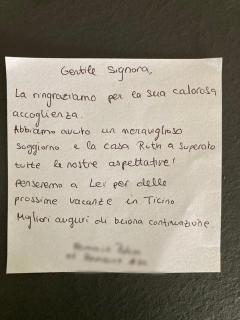 Gentile Signora,
La ringraziamo per la sua calorosa
accoglienza.
Abbiamo avuto un meraviglioso
soggiorno e la casa Ruth a superato
tutte le nostre aspettative!
Penseremo a Lei per delle
prossime vacanze in Ticino
Migliori auguri di buona continuazione